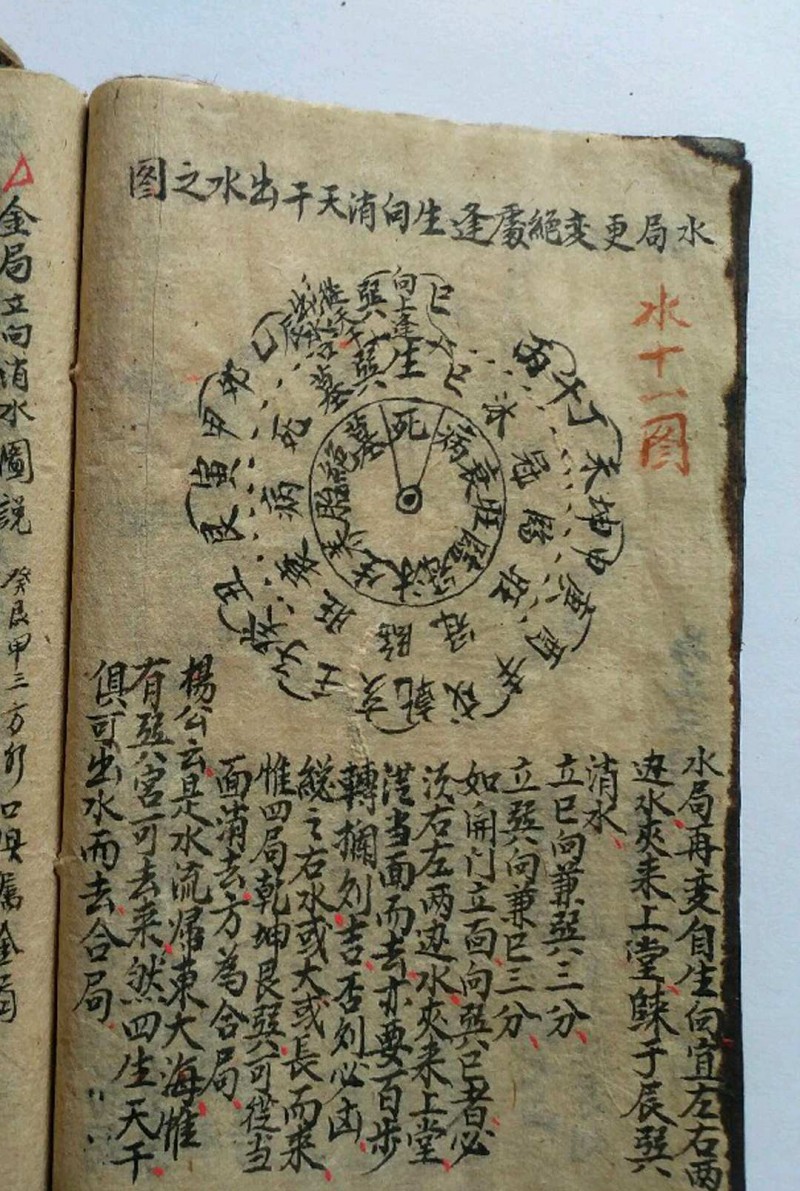 水局更变絕處逢生向消天干出水之图
水十一图
向上逢
生
巽
巽
巳
巳
丙午丁
未坤申
庚酉
戌
乾亥
壬
丑
艮寅甲
卯
乙
辰
沐
冠
臨
旺
臨
冠
旺
衰
病
死
墓
死
病
衰
旺
臨
冠
沐
生
养
胎
絕
墓
水局再变自生向宜左右两
边水夾来上堂歸于辰巽
消水
立巳向兼巽三分
立巽向兼巳三分
如開门立面向巽巳者必
须右左两边水夾来上堂
從当面而去亦要百步
轉擱则吉否则必凶
縂之右水或大或長而来
惟四局乾坤艮巽可從当
面消去方為合局
楊公云是水流歸東大海惟
有巽宮可去来然四生天干
俱可出水而去合局
金局立向消水圖説
癸艮甲三方